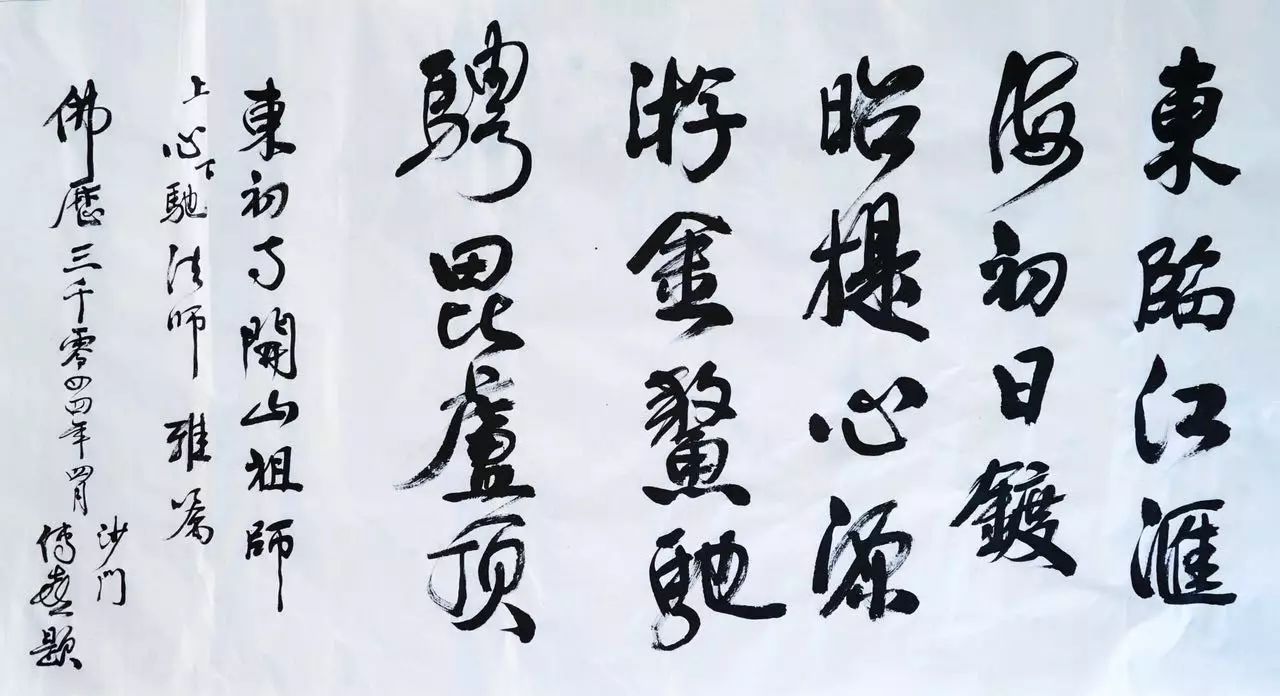 東臨江滙
海初日鍍
昭提心源
游金鰲馳
騁毘盧顶
東初寺開山祖師
上心下馳法師 雅嘱
佛歷三千零四四年四月
沙門
傳題